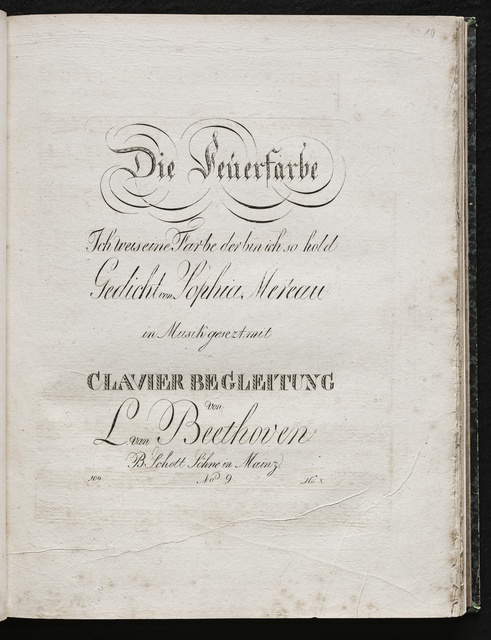 19
Die Feuerfarbe
Ich weis eine Farbe der bin ich so hold
Gedicht von Sophia Mereau
in Musik gesezt mit
CLAVIER BEGLEITUNG
von
L. van Beethoven
B. Schott Söhne in Mainz.
No 9